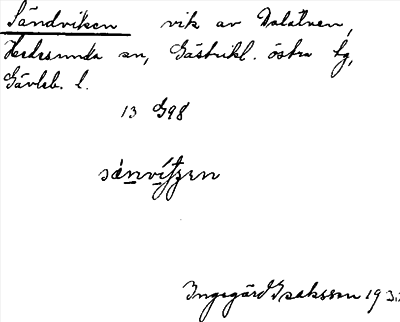 Sändviken vik av Dalälven,
Hedesunda sn, Gästrikl. östra tg,
Gävleb. l.
13 G98
Ingegärd Isaksson 193